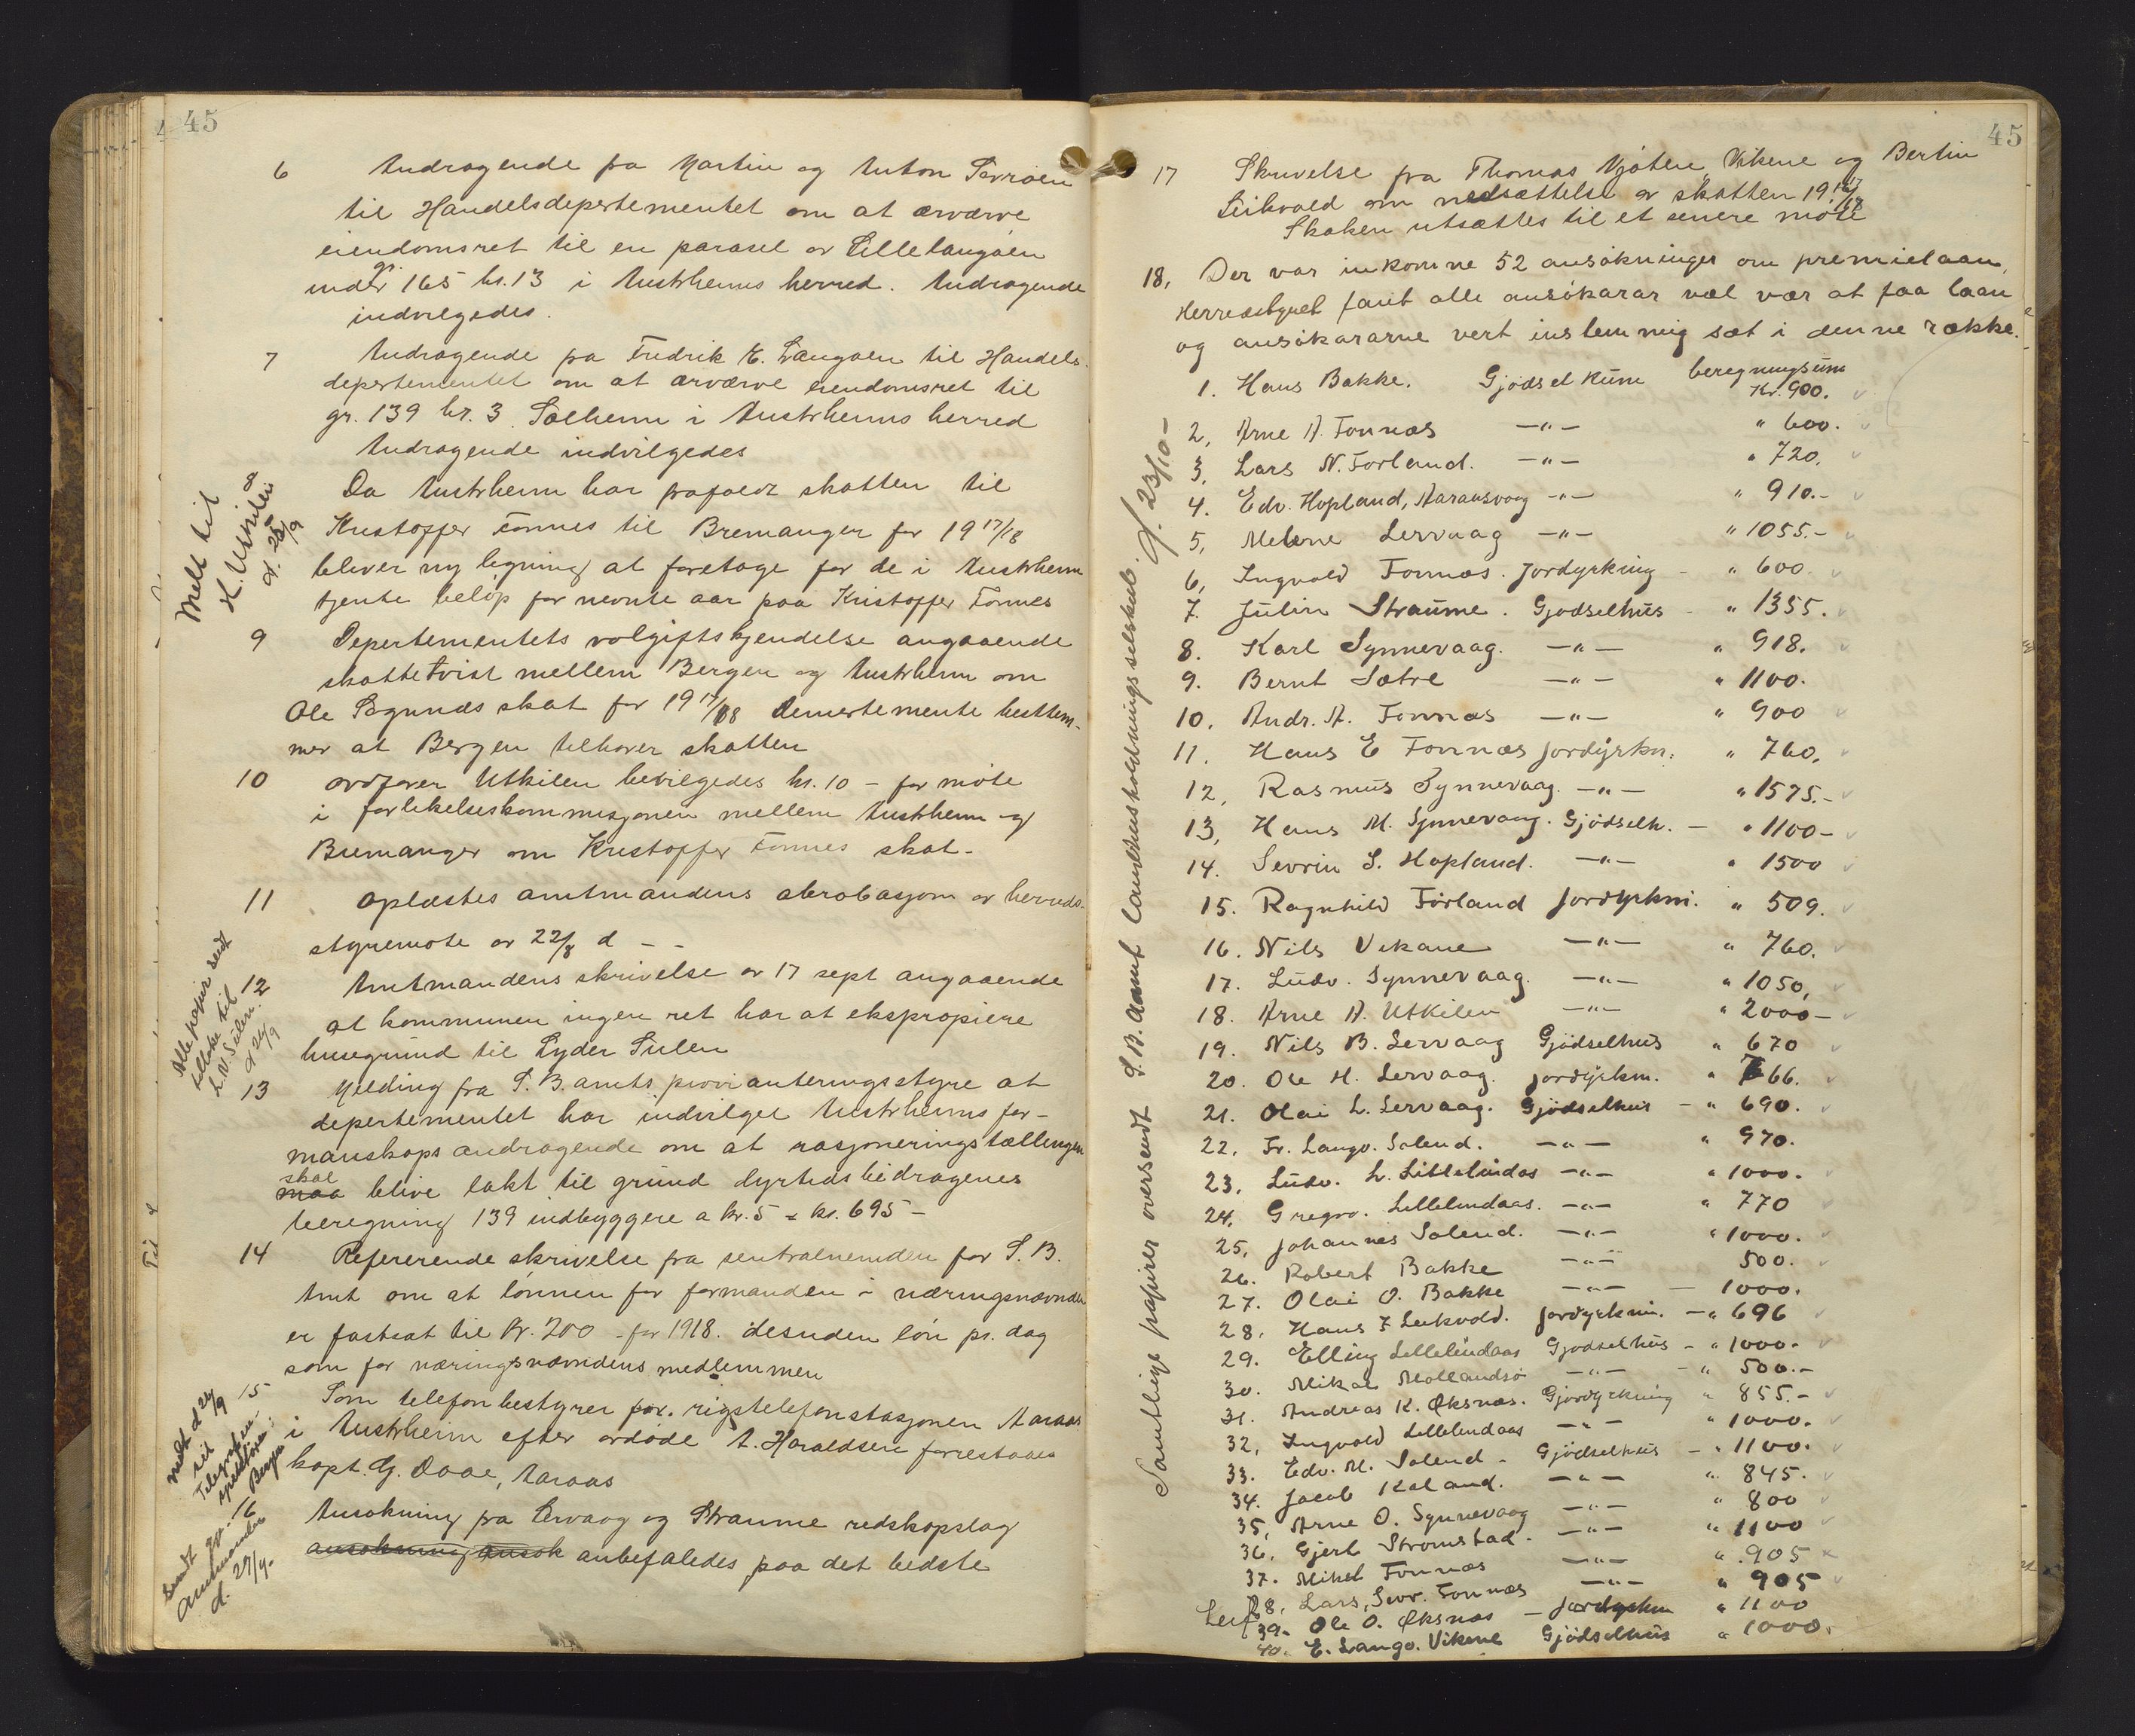 45
6 Andragende fra Martin og Anton Sævrøen
til Handelsdepertementet om at ærværve
eiendomsret til en parasel av Lillelangøen
under gr. 165 br. 13 i Austrheims herred. Andragende
indvilgedes.
7 Andragende fra Fredrik E. Langøen til Handels-
depertementet om at ærværve eiendomsret til
gr. 139 br. 3 Solheim i Austrheims herred
Andragende indvilgedes
Melt til
K. Utkilen
d. 25/9
8 Da Austrheim har frafaldt skatten til
Kristoffer Fonnes til Bremanger for 19 17/18
bliver ny ligning at foretage for de i Austrheim
tjente beløp for nevnte aar paa Kristoffer Fonnes
9 Depertementets volgiftskjendelse angaaende
skattetvist mellem Bergen og Austrheim om
Ole Søgnnæs skat for 19 17/18 bestem-
mer at Bergen tilhører skatten
10 ordfører Utkilen bevilgedes kr. 10 – for møte
i forlikelseskommisjonen mellem Austrheim og
Bremanger om Kristoffer Fonnes skat.
11 Oplæstes amtmandens abrobasjom av herreds-
styremøte av 22/8 d – -
Alle papir sendt
tilbake til
L. N. Sulen.
d 24/9
12 Amtmandens skrivelse av 17 sept angaaende
at kommunen ingen ret har at ekspropiere
husegrund til Lyder Sulen
13 Melding fra S. B. amts provianteringsstyre at
depertementet har indvilget Austrheims for-
manskaps andragende om at rasjoneringstællingen
skal
maa blive lakt til grund dyrtidsbidragenes
beregning 139 indbyggere a kr. 5 = kr. 695 –
14 Refererende skrivelse fra sentralnemden for S. B.
Amt om at lønnen for formanden i næringsnævnden
er fastsat til kr. 200 – for 1918. desuden løn pr. dag
som for næringsnævndens medlemmer
meldt d 24/9
til
Telegraf
Bergen
15 Som telefonbestyrer for. rigstelefonstasjonen Aaraas
i Austrheim efter avdøde A. Haraldsen forrestaaes
kapt. G. Daae, Aaraas
Sendt
Amtmanden
d. 27/9.
16 Ansøkning fra Lervaag og Straume redskapslag
ansøkning ansøk anbefaledes paa det bedste
45
17 Skrivelse fra Thomas Njøten, Vikene og Bertin
Leikvold om nedsættelse av skatten 19 17/18
Skaken utsættes til et senere møte
18, Der var inkomne 52 ansøkninger om premielaan,
Herredstyret fant alle ansøkarar væl vær at faa laan
og ansøkararne vert instemmig sæt i denne række.
beregningsum
1. Hans Bakke. Gjødselkum Kr. 900.
2, Arne A. Fonnæs –"– " 600.
3, Lars N. Førland. –"– " 720.
4. Edv. Hopland, Aaraasvaag –"– " 910.–
5, Melene Lervaag –"– " 1055.–
6, Ingvald Fonnæs. Jordyrking – " 600.
7. Julin Straume. Gjødselhus – " 1355.
8. Karl Synnevaag. –"– " 918.
9. Bernt Sætre –"– " 1100.
10. Andr. A. Fonnæs –"– " 900
11. Hans E Fonnæs Jordyrkn. " 760.
12, Rasmus Synnevaag. –"– " 1575.–
13, Hans M. Synnevaag. Gjødselh. – " 1100–
14. Sevrin S. Hopland. –"– " 1500
15. Ragnhild Førland Jordyrkni. " 509.
16. Nils Vikane –"– " 760.
17. Ludv. Synnevaag. –"– " 1050,
18. Arne A. Utkilen –"– " 2000–
19. Nils B. Lervaag Gjødselhus " 670
20. Ole H. Lervaag. Jordyrkn. " 766.
21. Olai L. Lervaag. Gjødselhus – " 690.
22, Fr. Langø. Solend. –"– " 970.
23, Ludv. L. Lillelindås –"– " 1000.
24, Gregor. Lillelindaas. –"– " 770
25, Johannes Solend. –"– " 1000.
26. Robert Bakke –"– 500.
27. Olai O. Bakke –"– – 1000.
28, Hans F Leikvold. Jordyrkni. –" 696
29. Elling Lillelindaas Gjødselhus – " 1000.
30. Mikal Mollandsø –"– –" 500.–
31. Andreas K. Øksnæs. Gjordyrkning " 855.–
32, Ingvald Lillelindaas –"– " 1000.
33. Edv. M. Solend – Gjødselhus – " 1100.
34. Jacob Kaland. –"– " 845.
35, Arne O. Synnevaag –"– " 800
36, Gjert Strømstad. –"– " 1100
37. Mikal Fonnæs –"– " 905
38, Lars, Sevr. Fonnæs –"– " 905
39. Ole O. Øksnæs – Jordyrkn " 1100
40. E. Langø. Vikene Gjødselhus " 1000.
Samtlige papirer oversendt S. B. Aamt Landhusholdningsselskab. d. 23/10 –